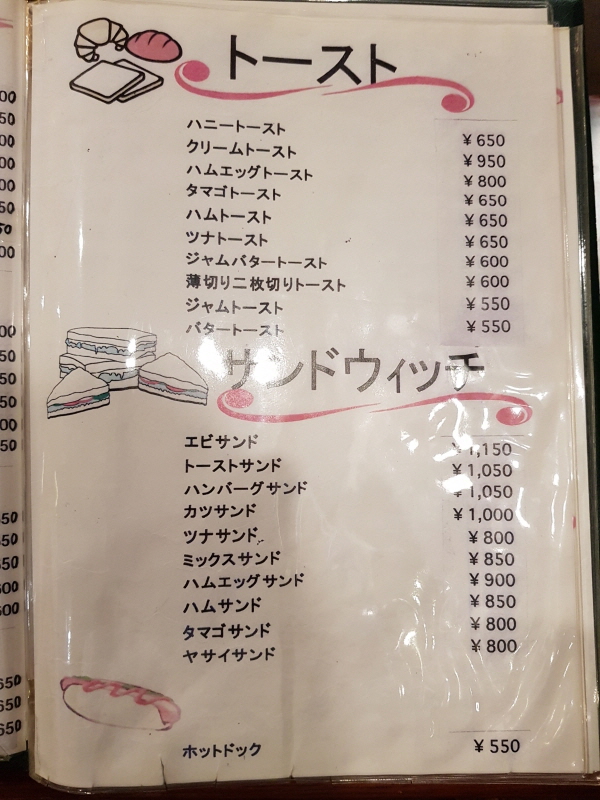 トースト
ハニートースト ¥650
クリームトースト ¥950
ハムエッグトースト ¥800
タマゴトースト ¥650
ハムトースト ¥650
ツナトースト ¥650
ジャムバタートースト ¥600
薄切り二枚切りトースト ¥600
ジャムトースト ¥550
バタートースト ¥550
サンドウィッチ
エビサンド ¥1,150
トーストサンド ¥1,050
ハンバーグサンド ¥1,050
カツサンド ¥1,000
ツナサンド ¥800
ミックスサンド ¥850
ハムエッグサンド ¥900
ハムサンド ¥850
タマゴサンド ¥800
ヤサイサンド ¥800
ホットドック ¥550